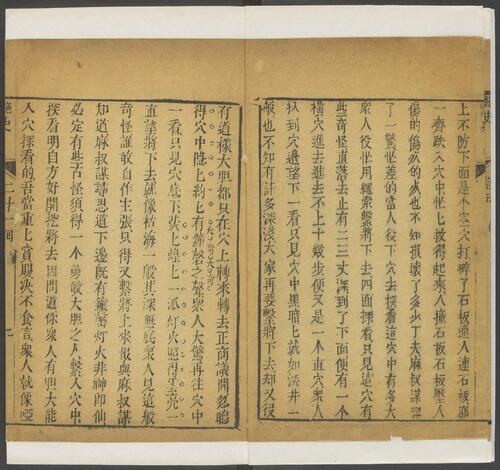 上不防下面是个空穴打碎了石板連人連石板都
一齊跌入穴中忙上扳得起來人撞石板石板壓人
傷的傷死的死也不知損壞了多少丁夫麻叔謀
了一驚忙差的當人役下穴去探看這穴中有多大
眾人役忙用繩索繫將下去四面探看只見這穴有
些奇怪直落去止有二三丈深到了下面便有一个
橫穴進去進去不上十數步便又是一个直穴眾人
扒到穴邊望下一看只見穴中黑暗上就如深井一
般也不知有許多深淺大家再要繫將下去却又沒
有這樣大胆都只在穴上轉來轉去正商議間忽聽
得穴中隱上約上有鐘磬之聲眾人大驚再往穴中
一看只見穴底下
灯火照得雪亮一
直望將下去就像
海一般其深無底眾人見這般
奇怪誰敢自作主張只得又繫將上來報與麻叔謀
知道麻叔謀尋思道下邊既有鐘磬灯火非神卽仙
必定有些古怪須得一个勇敢大胆之人繫入穴中
探看明白方好開挖將去因問道你眾人有胆大能
入穴探看的吾當重上賞賜决不食言眾人就像啞
艶史
二十一回
七